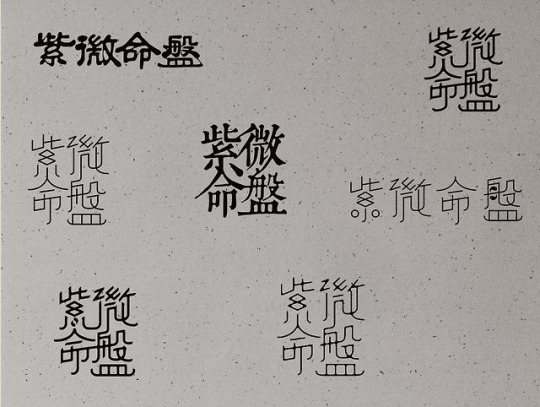 紫微命盤
紫微
命盤
紫微
命盤
紫微
命盤
紫微命盤
紫微
命盤
紫微
命盤